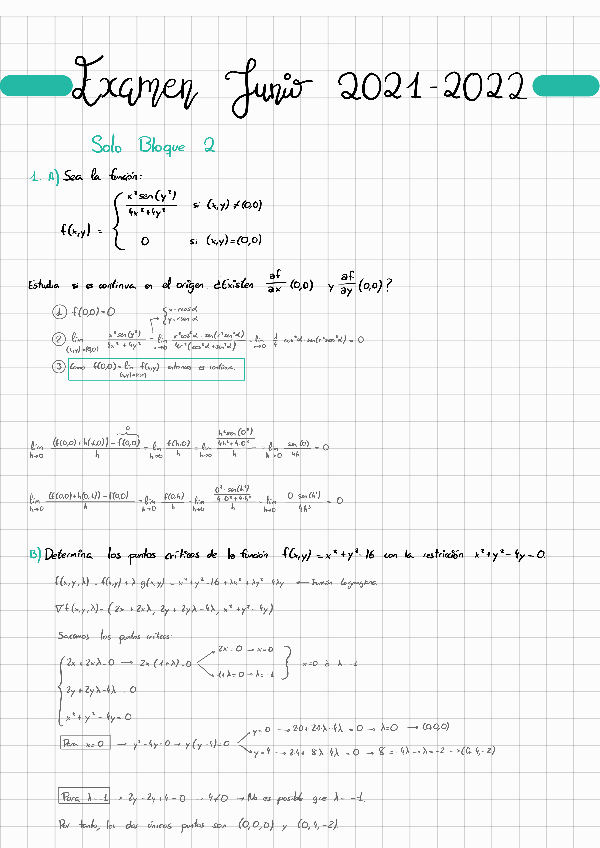 Examen Junio 2021-2022
Solo Bloque 2
1. A) Sea la función:
f(x,y) = { x² sen(y²) / 4x²+4y² si (x,y) ≠ (0,0)
0 si (x,y)=(0,0)
Estudia si es continua en el origen ¿Existen ∂f/∂x (0,0) y ∂f/∂y (0,0)?
① f(0,0)=0 { x=r cos α
y=r sen α
② lim (x,y)→(0,0) x² sen(y²) / 4x²+4y² = lim r→0 r² cos² α · sen(r² sen² α) / 4r² (cos² α + sen² α) = lim r→0 1/4 cos² α · sen(r² sen² α) = 0
③ Como f(0,0) = lim (x,y)→(0,0) f(x,y) entonces es continua.
lim h→0 (f(0,0)+h(1,0)) - f(0,0) / h = lim h→0 f(h,0) / h = lim h→0 h² sen(0²) / 4h²+4·0² / h = lim h→0 sen(0) / 4h = 0
lim h→0 (f(0,0)+h(0,1)) - f(0,0) / h = lim h→0 f(0,h) / h = lim h→0 0² · sen(h²) / 4·0²+4·h² / h = lim h→0 0 · sen(h²) / 4h³ = 0
B) Determina los puntos críticos de la función f(x,y) = x²+y²-16 con la restricción x²+y²-4y=0.
f(x,y,λ) = f(x,y) + λ g(x,y) = x²+y²-16+λx²+λy²-4λy ← Función Lagrangiana
∇f(x,y,λ) = (2x+2xλ, 2y+2yλ-4λ, x²+y²-4y)
Sacamos los puntos críticos:
{ 2x+2xλ=0 → 2x(1+λ)=0 2x=0 → x=0
1+λ=0 → λ=-1 } x=0 ó λ=-1
2y+2yλ-4λ=0
x²+y²-4y=0
Para x=0 → y²-4y=0 → y(y-4)=0 y=0 → 2·0+2·0·λ-4λ=0 → λ=0 → (0,0,0)
y=4 → 2·4+8λ-4λ=0 → 8=-4λ → λ=-2 → (0,4,-2)
Para λ=-1 → 2y-2y+4=0 → 4≠0 → No es posible que λ=-1.
Por tanto, los dos únicos puntos son (0,0,0) y (0,4,-2).